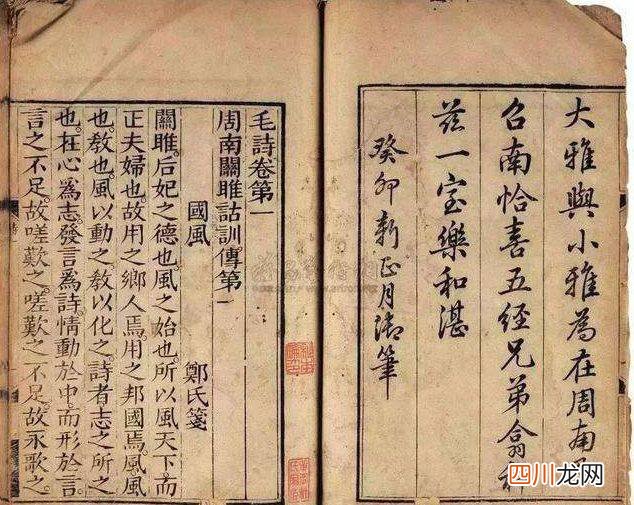 大雅與小雅為在周南
召南恰喜五經兄弟翕
茲一室樂和湛
癸卯新正月御筆
毛詩卷第一
周南關雎詁訓傳第一
國風 鄭氏箋
關雎。后妃之德也。風之始也。所以風天下而
正夫婦也。故用之鄉人焉。用之邦國焉。風風
也。教也。風以動之。教以化之。詩者志之所之
也。在心爲志。發言爲詩。情動於中。而形於言。
言之不足。故嗟歎之。嗟歎之不足。故永歌之。
四川龙网